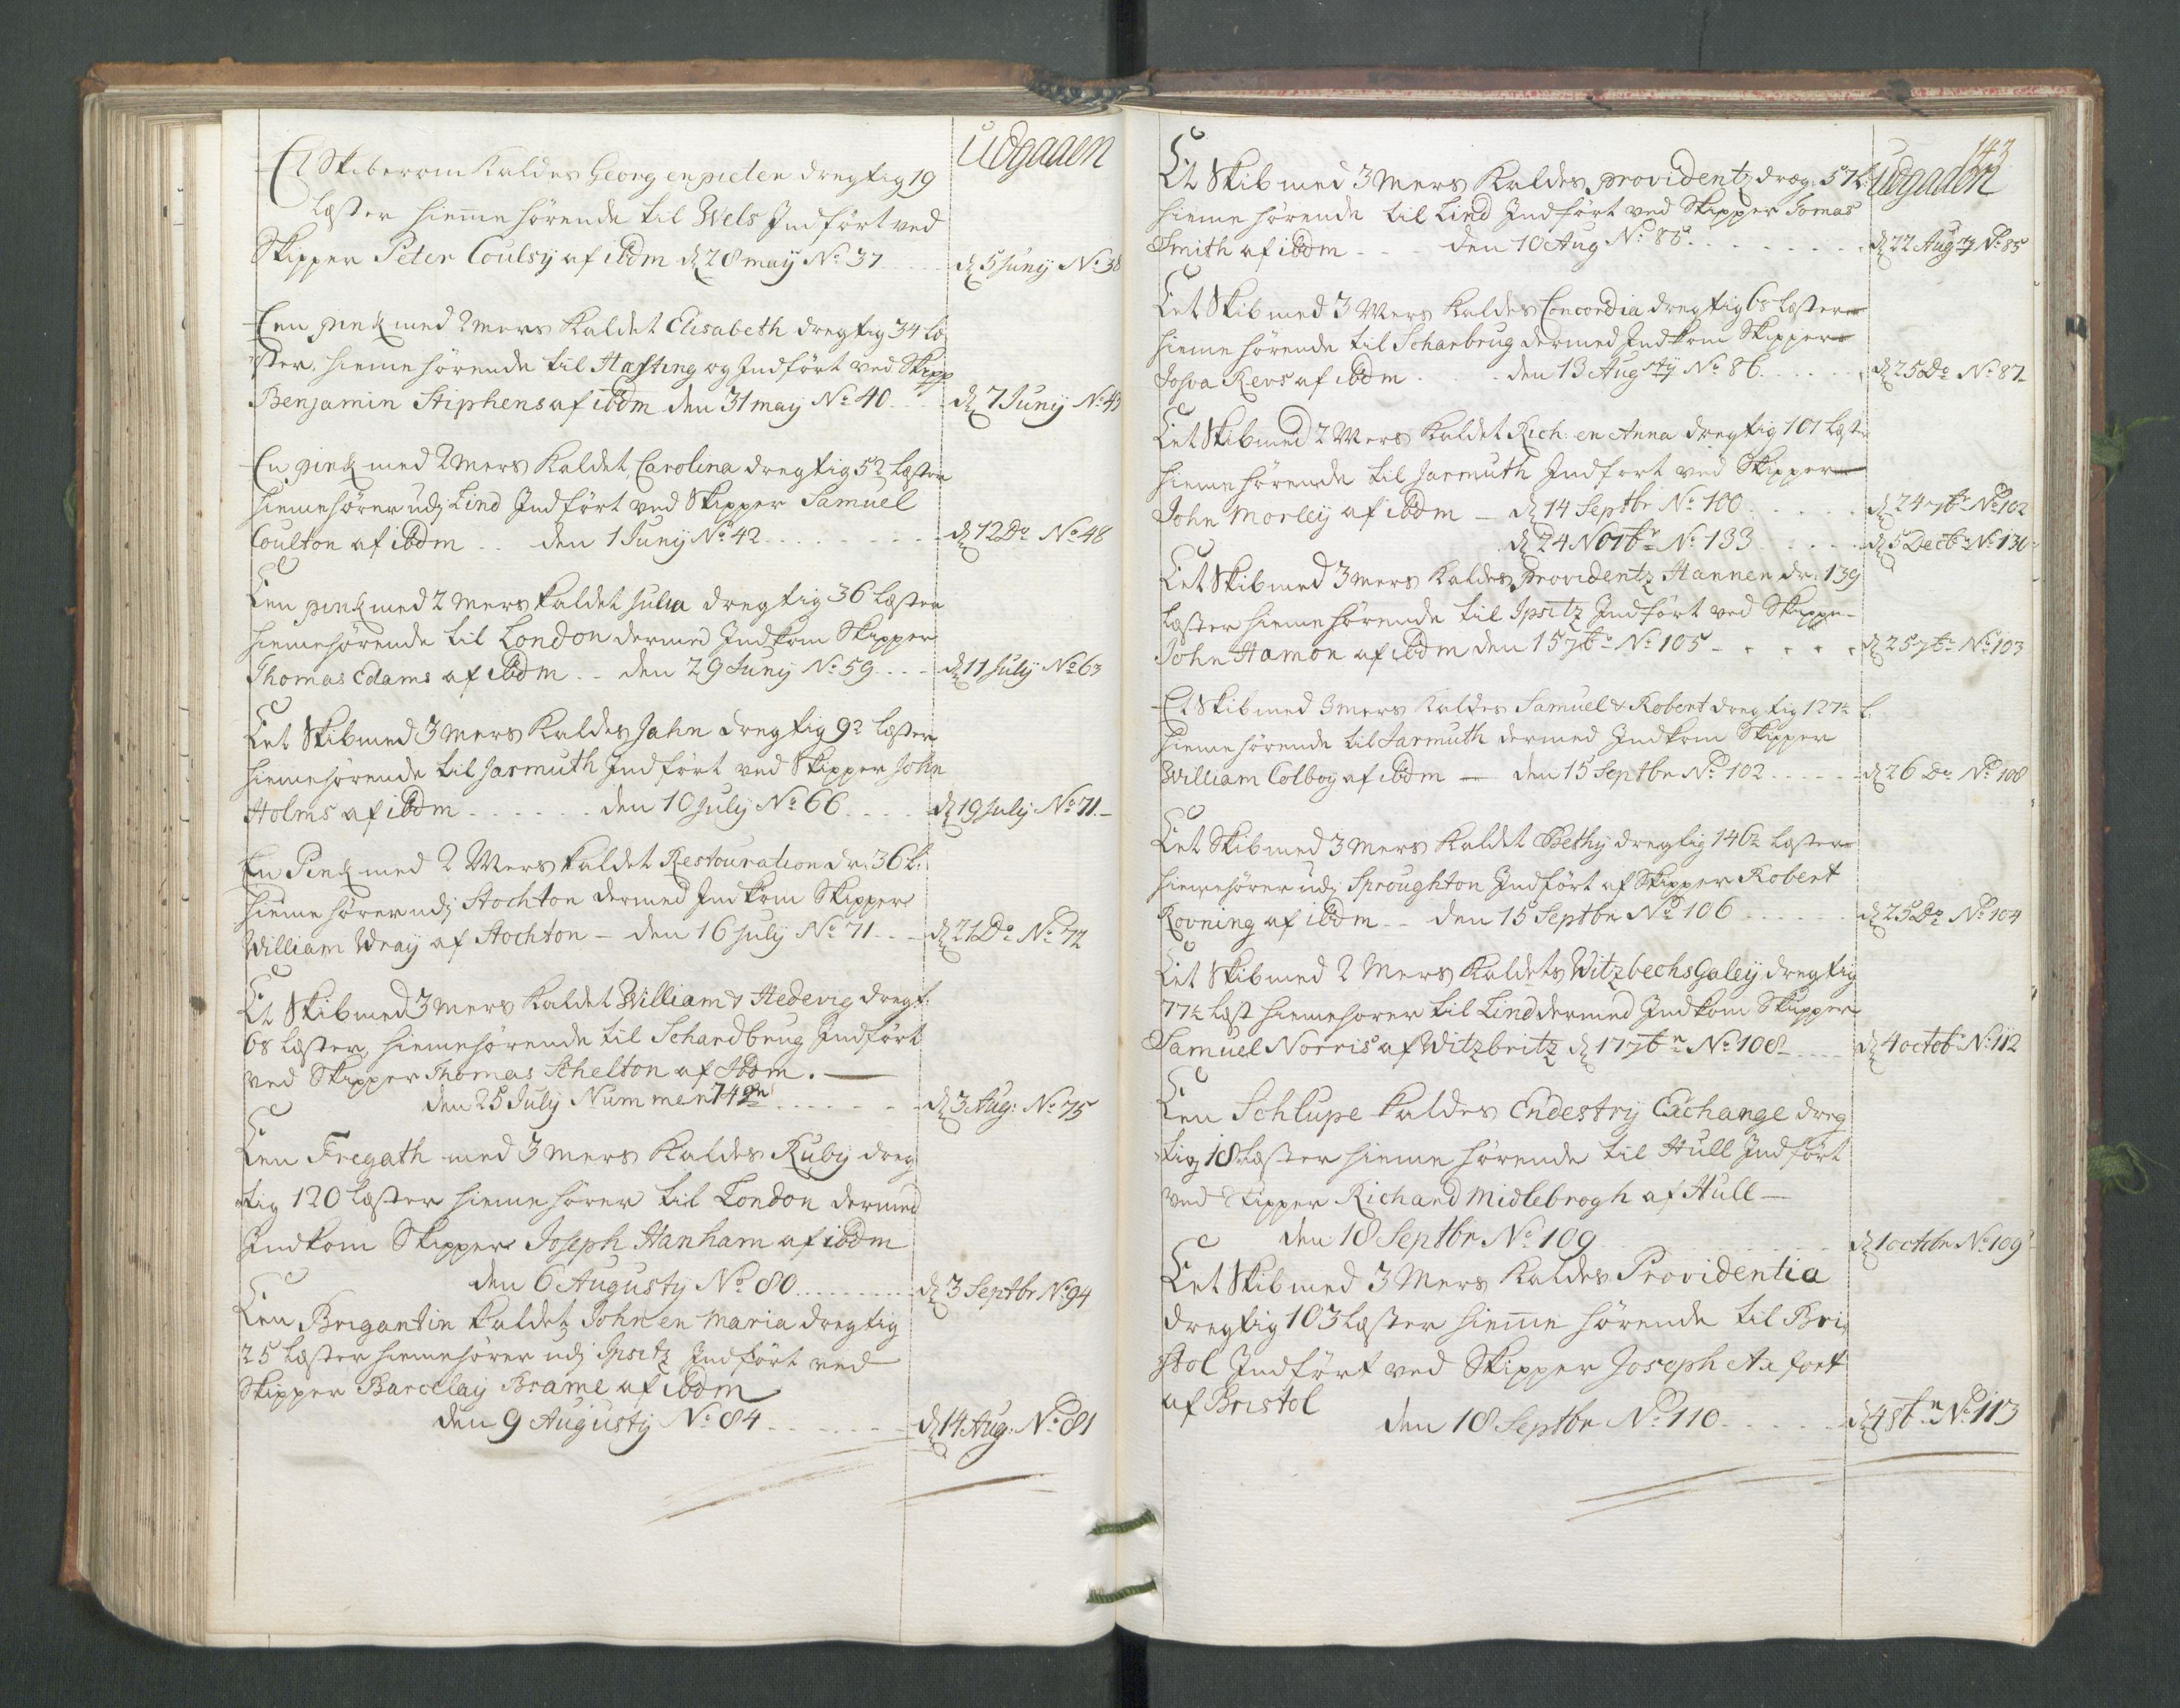 Udgaaen
Et Skiberom Kaldes Georg en pieter dregtig 19
Læster hiemme hørende til Wels Indført ved
Skipper Peter Coulsy af ibdm d 28 may No 37 d 5 Juny No 38
Een pink med 2 mers Kaldet Elisabeth dregtig 34 Læ
ster, hiemehørende til Hasting og Indført ved Skipp
Benjamin Stiphens af ibdm den 31 may No 40 d 7 Juny No 43
En pink med 2 mers Kaldet Carolina dregtig 52 Læster
hiemehører udj Lind Indført ved Skipper Samuel
Coulton af ibdm den 1 Juny No 42 d 12 Do No 48
Een pink med 2 mers kaldet Julia dregtig 36 Læster
hiemehørende til London dermed Indkom Skipper
Thomas Edams af ibdm den 29 Juny No 59 d 11 July No 63
Eet Skib med 3 mers Kaldes Jahn dregtig 92 Læster
hiemehørende til Jarmuth Indført ved Skipper John
Holms af ibdm den 10 July No 66 d 19 July No 71
En Pink med 2 Mers kaldet Restouration dr: 36 L:
hieme hører udj Stochton dermed Indkom Skipper
William Wray af Stochton den 16 July No 71 d 21 Do No 72
Et Skib med 3 mers Kaldet William & Hedevig dregt:
68 Læster, hiemehørende til Schandbrug Indført
ved Skipper Thomas Schelton af ibdm.
den 25 July Nummer 74 d 3 Aug: No 75
Een Fregath med 3 mers Kaldes Ruby dreg
tig 120 Læster hieme hører til London dermed
Indkom Skipper Joseph Hanham af ibdm
den 6 Augusty No 80 d 3 Septbr No 94
Een Brigantin kaldet John en Maria dregtig
25 Læster hiemehører udj Ipsitz Indført ved
Skipper Barcelay Brame af ibdm
den 9 Augusty No 84 d 14 Aug: No 81
143
Et Skib med 3 Mers Kaldes providentz dræg: 57 L: udgaaen
hieme hørende til Lind Indført ved Skipper Tomas
Smith af ibdm den 10 Aug No 85 d 22 Augsty No 85
Eet Skib med 3 Mers Kaldes Concordia dregtig 68 Læster
hieme hørende til Scharbrug dermed Indkom Skipper
Josva Revs af ibdm den 13 Augsty No 86 d 25 Do No 87
Eet Skib med 2 Mers Kaldet Rich: en Anna dregtig 101 Læst
hieme hørende til Jarmuth Indført ved Skipper
John Morley af ibdm d 14 Septbr No 100 d 24 7br No 102
d 24 Novbr No 133 d 5 Decbr No 130
Eet Skib med 3 mers Kaldes providentz Hannen dr: 139
Læster hieme hørende til Ipsitz Indført ved Skippe
John Hamon af ibdm den 15 7br No 105 d 25 7br No 103
Et Skib med 3 mers Kaldes Samuel & Robert dregtig 127½ L.
hieme hørende til Jarmuth dermed Indkom Skipper
William Colboy af ibdm den 15 Septbr No 102 d 26 Do No 108
Eet Skib med 3 mers Kaldet Bethy dregtig 146½ Læster
hiemehører udj Sproughton Indført af Skipper Robert
Rovning af ibdm den 15 Septbr No 106 d 25 Do No 104
Eet Skib med 2 Mers Kaldets Witzbechs Galey dregtig
77½ Læst hiemehører til Lind dermed Indkom Skipper
Samuel Norris af Witzbritz d 17 7br No 108 d 4 octob No 112
Een Schlupe kaldes Endestry Exchange dreg
tig 18 Læster hieme hørende til Hull Indført
ved Skipper Richard Midlebrogh af Hull
den 18 Septbr No 109 d 1 octbr No 109
Eet Skib med 3 Mers Kaldes Providentia
dregtig 103 Læster hieme hørende til Bri
stol Indført ved Skipper Joseph Axfort
af Bristol
den 18 Septbr No 110 d 4 8br No 113